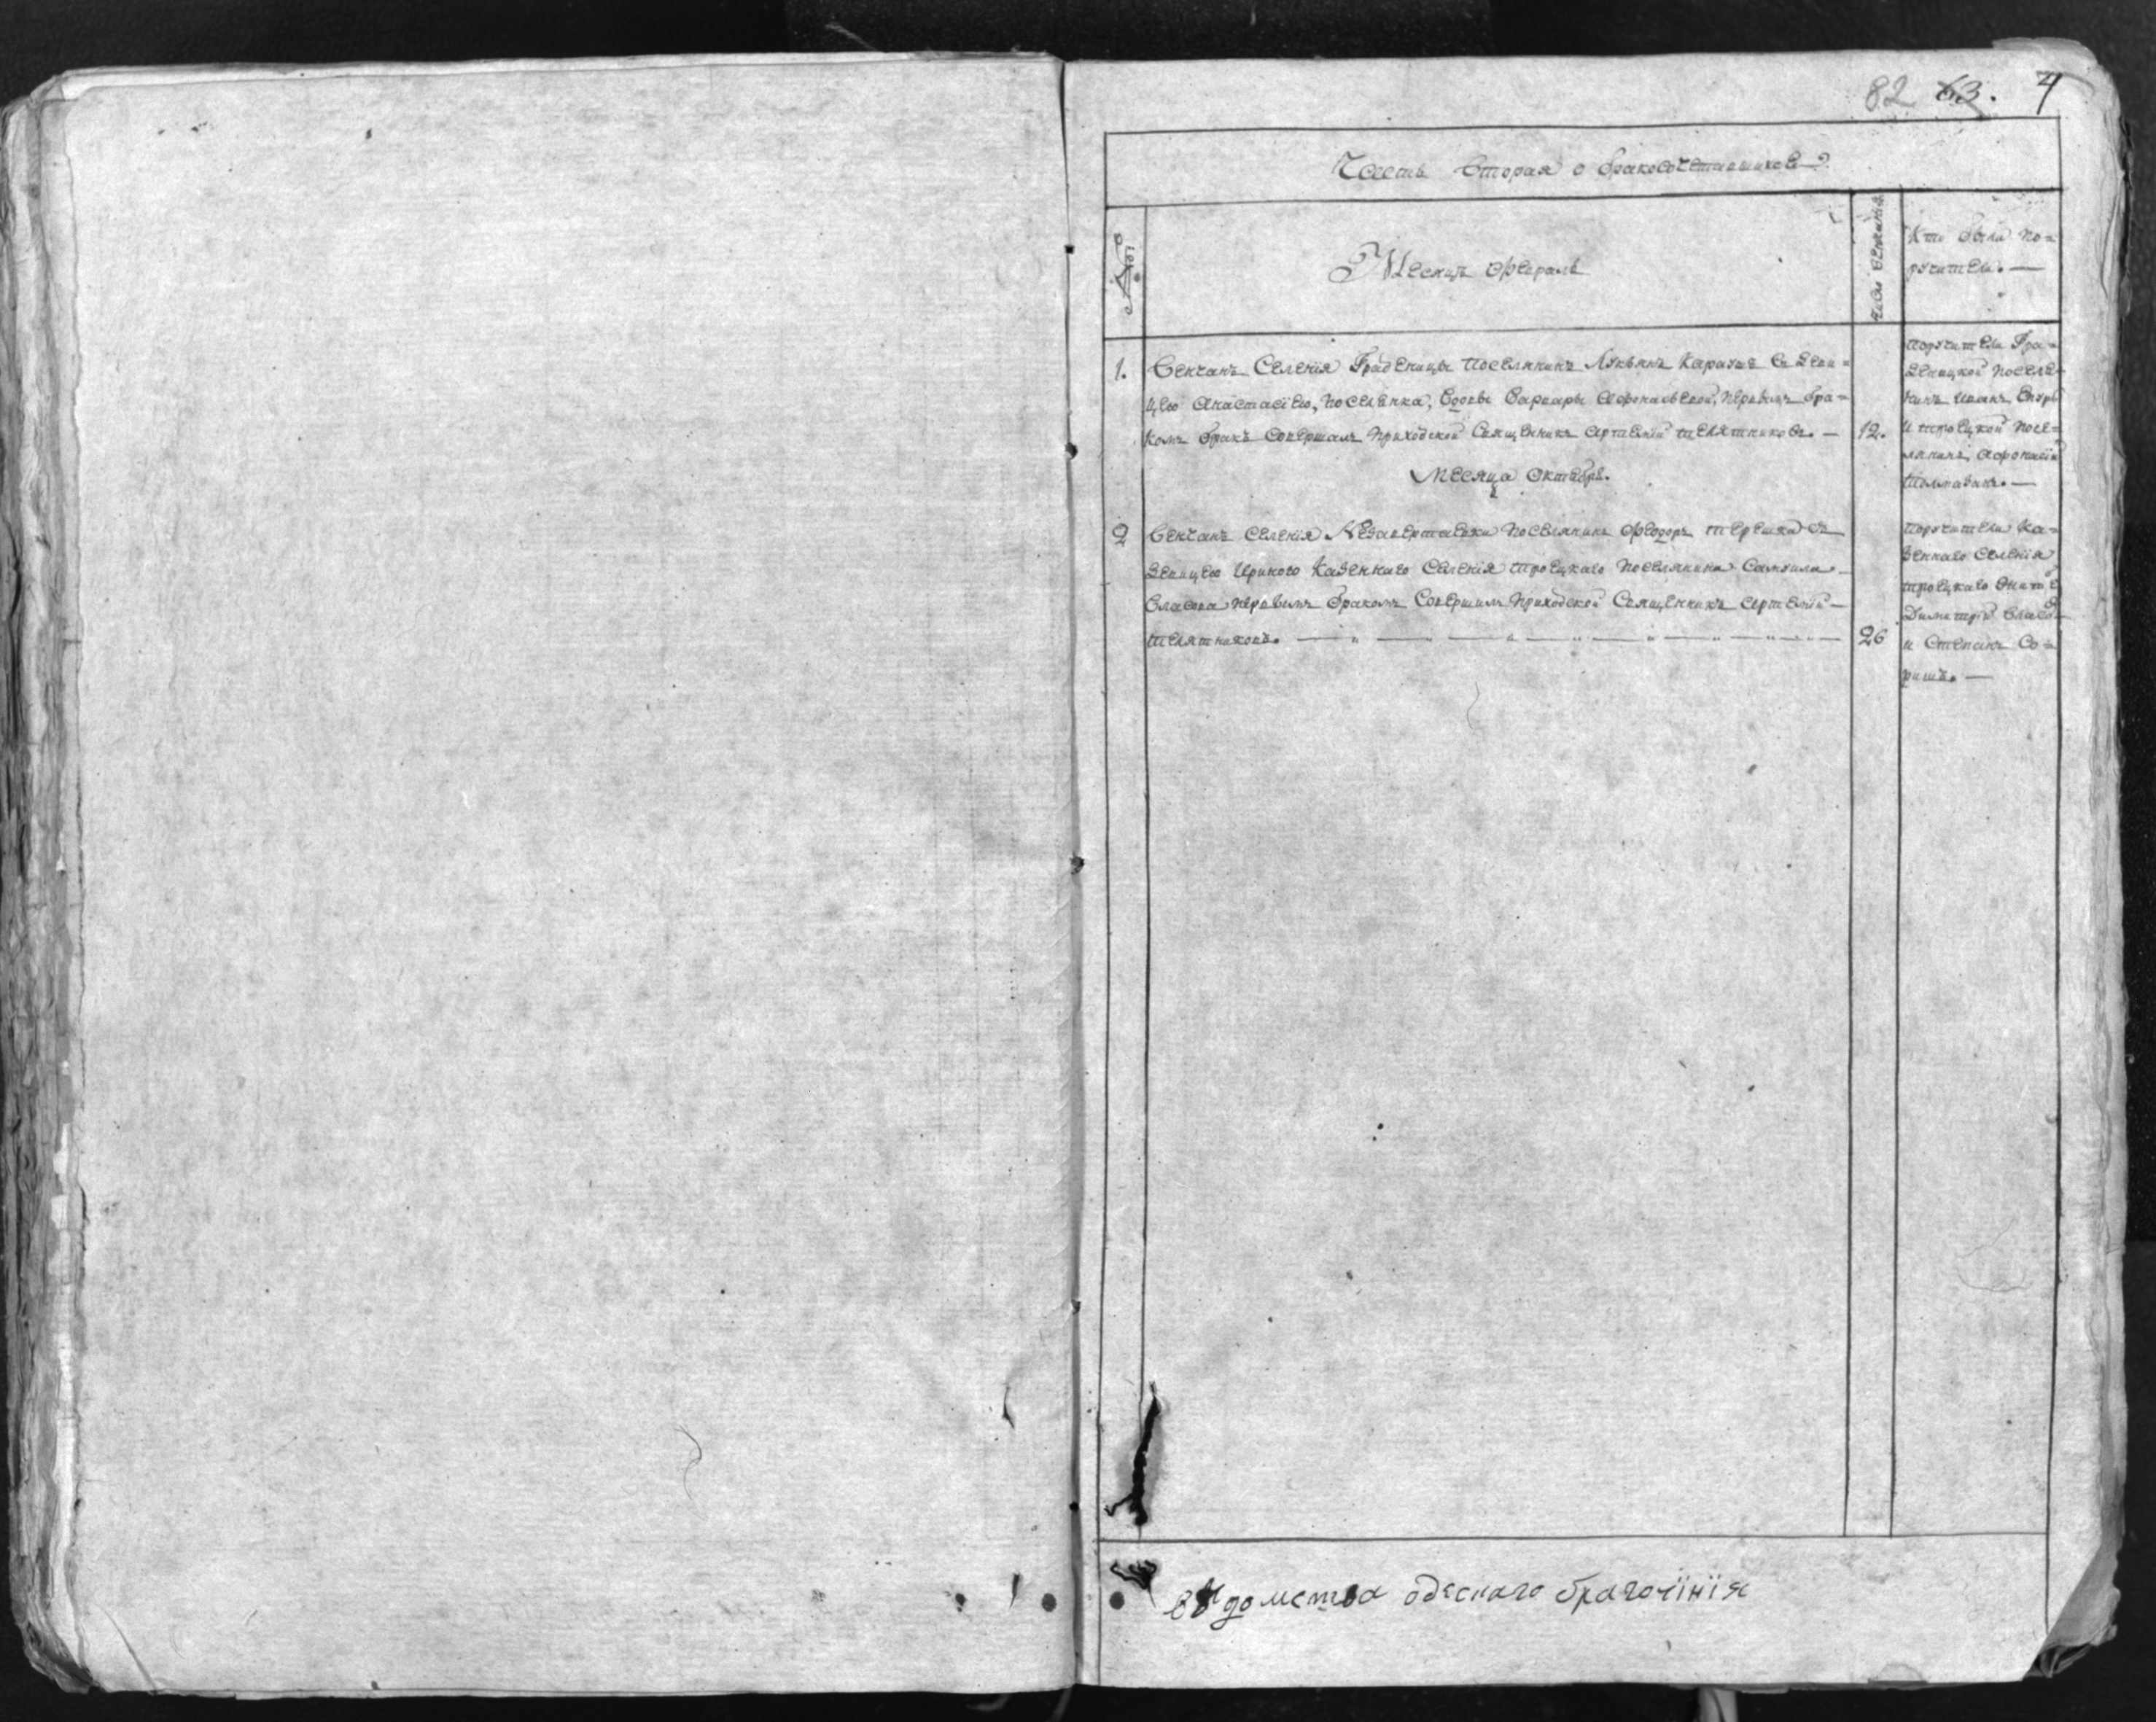 82 63. 4
Часть вторая о бракосочетавшихся
№
Месяцъ Февраль
Кто были по=
ручители. —
1. Венчанъ Селенія Граденицы Поселянинъ Лукьянъ Караушъ съ деви=
цею Анастасіею, поселянка, вдовы Варвары Афонасьевой, первымъ бра=
комъ бракъ совершалъ приходской Священникъ Артемій Телятниковъ. — 12.
Поручители Гра=
деницкой поселе=
нинъ Иванъ
и троецкой посе=
лянинъ, Афонасій
Месяца Октября.
2 Венчанъ селенія Незавертаевки поселянинъ Феодоръ Терешка съ
девицею Ириною Казеннаго Селенія Троецкаго поселянина Самуила
Власова первымъ бракомъ Совершилъ приходской Священникъ Артемій —
Телятниковъ. — 26
Поручители Ка=
зеннаго Селенія
троецкаго
Димитрій Власо
и Степанъ Со=
ришъ. —
ведомства одескаго благочинія